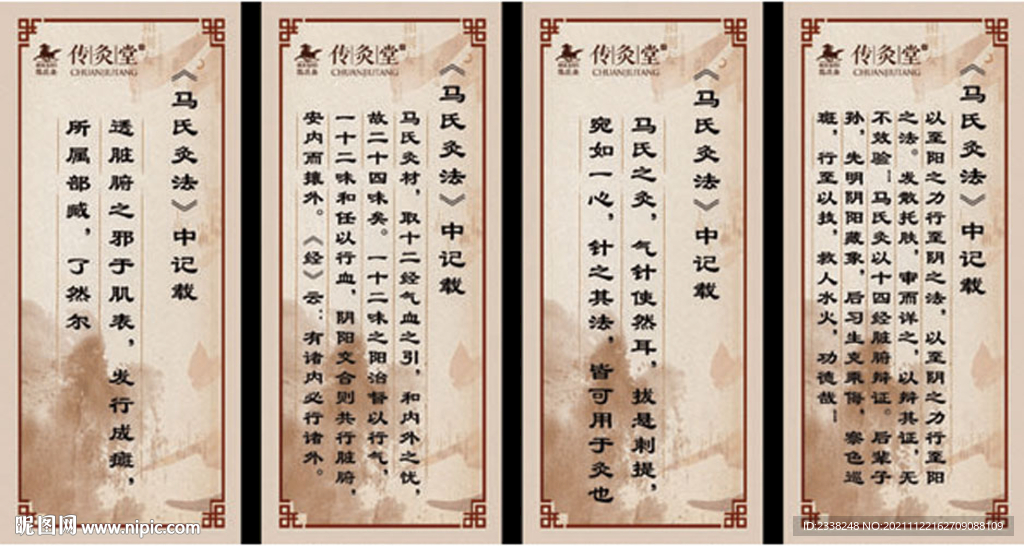 传灸堂
CHUANJIUTANG
《马氏灸法》中记载
透脏腑之邪于肌表，发行成癍，
所属部臧，了然尔
传灸堂
CHUANJIUTANG
《马氏灸法》中记载
马氏灸材，取十二经气血之引，和内外之忧，
故二十四味矣。一十二味之阳治督以行气，
一十二味和任以行血，阴阳交合则共行脏腑，
安内而攘外。《经》云：有诸内必行诸外。
传灸堂
CHUANJIUTANG
《马氏灸法》中记载
马氏之灸，气针使然耳，拔悬刺提，
宛如一心，针之其法，皆可用于灸也
传灸堂
CHUANJIUTANG
《马氏灸法》中记载
以至阳之力行至阴之法，以至阴之力行至阳
之法。发散托肤，审而详之，以辩其证，无
不效验—马氏灸以十四经脏腑辩证。后辈子
孙，先明阴阳藏象，后习生克乘侮，察色巡
斑，行至以技，救人水火，功德哉—
昵图网 www.nipic.com
ID:2338248 NO:20211122162709088109